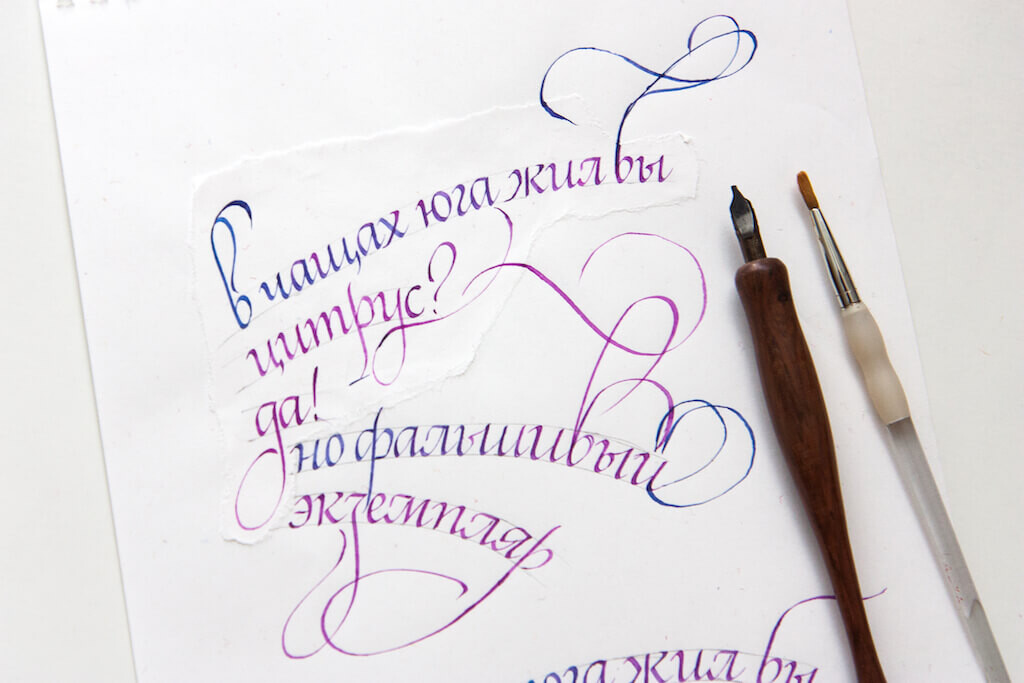 в чащах юга жил бы
цитрус?
да!
но фальшивый
экземпляр
юга жил бы